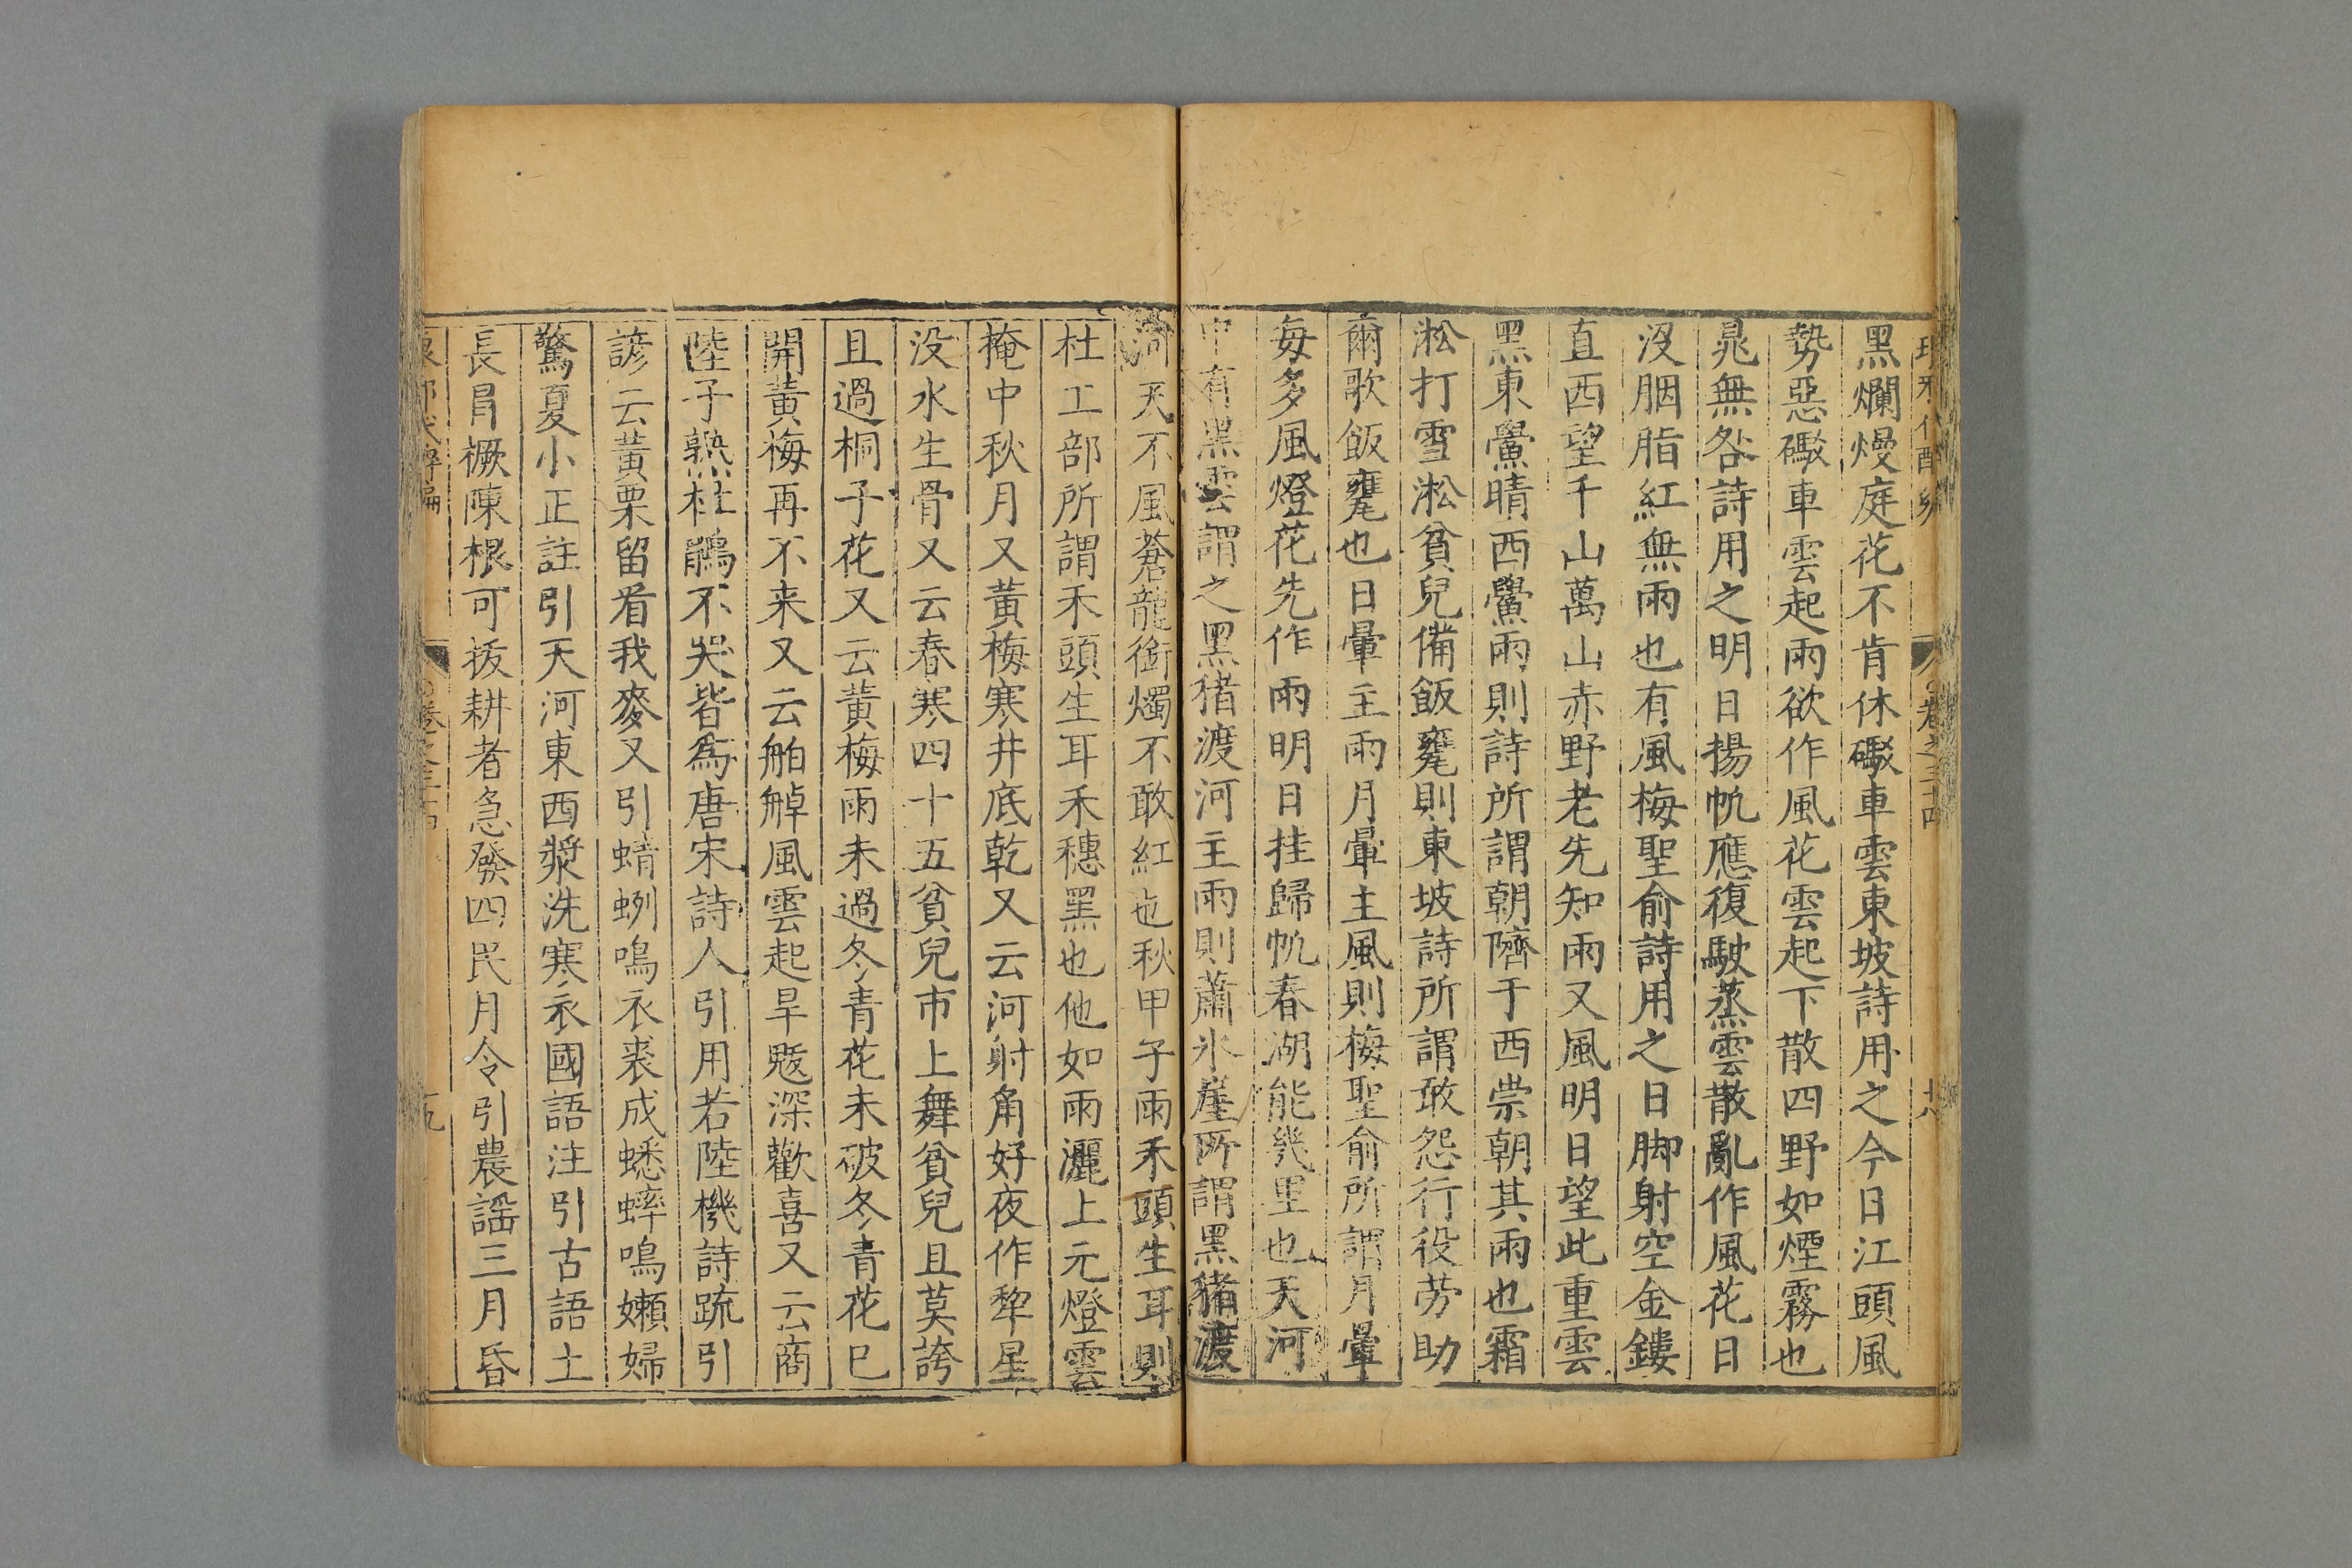 黑爛熳庭花不肯休礮車雲東坡詩用之今日江頭風
勢惡礮車雲起雨欲作風花雲起下散四野如煙霧也
晁無咎詩用之明日揚帆應復駛蒸雲散亂作風花日
没胭脂紅無雨也有風梅聖俞詩用之日脚射空金鏤
直西望千山萬山赤野老先知雨又風明日望此重雲
黑東鱟晴西鱟雨則詩所謂朝隮于西崇朝其雨也霜
淞打雪淞貧兒備飯甕則東坡詩所謂敢怨行役劳助
爾歌飯甕也日暈主雨月暈主風則梅聖俞所謂月暈
每多風燈花先作雨明日挂歸帆春湖能幾里也天河
中有黑雲謂之黑猪渡河主雨則蕭氷崖所謂黑豬渡
河天不風蒼龍銜燭不敢紅也秋甲子雨禾頭生耳則
杜工部所謂禾頭生耳禾穗黑也他如雨灑上元燈雲
掩中秋月又黃梅寒井底乾又云河射角好夜作犂星
没水生骨又云春寒四十五貧兒市上舞貧兒且莫誇
且過桐子花又云黃梅雨未過冬青花未破冬青花巳
開黃梅再不来又云舶䑲風雲起旱魃深歡喜又云商
陸子熟杜鵑不哭皆爲唐宋詩人引用若陸機詩疏引
諺云黃栗留看我麥又引蜻蛚鳴衣裘成蟋蟀鳴嬾婦
驚夏小正註引天河東西漿洗寒衣國語注引古語土
長冒橛陳根可拔耕者急發四民月令引農謡三月昏